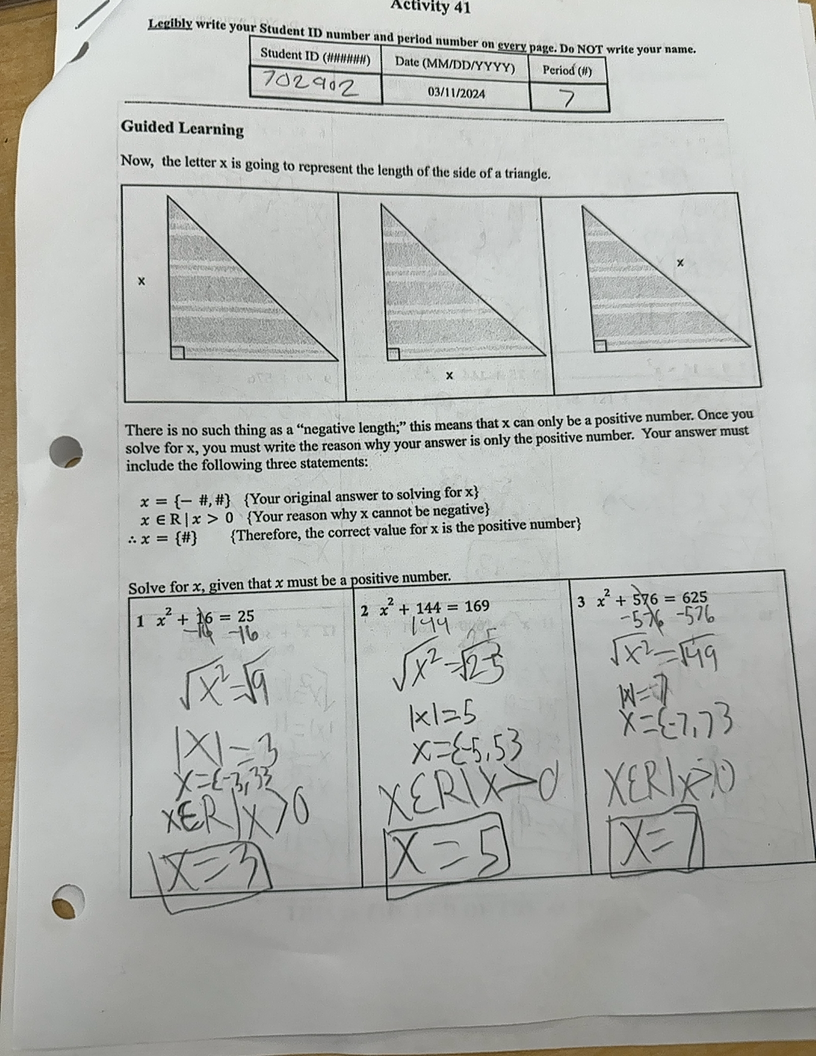 Activity 41
Legibly write your Student ID number and period number on every page. Do NOT write your name.
Student ID (######) Date (MM/DD/YYYY) Period (#)
702902 03/11/2024 7
Guided Learning
Now, the letter x is going to represent the length of the side of a triangle.
x
x
x
There is no such thing as a “negative length;” this means that x can only be a positive number. Once you
solve for x, you must write the reason why your answer is only the positive number. Your answer must
include the following three statements:
x = {− #, #} {Your original answer to solving for x}
x ∈ R | x > 0 {Your reason why x cannot be negative}
∴ x = {#} {Therefore, the correct value for x is the positive number}
Solve for x, given that x must be a positive number.
1 x² + 16 = 25
-16 -16
√x² = √9
|x| = 3
x={-3,3}
x∈R|x>0
x=3
2 x² + 144 = 169
144 25
√x² = √25
|x|=5
x={-5,5}
x∈R|x>0
x=5
3 x² + 576 = 625
-576 -576
√x² = √49
|x|=7
x={-7,7}
x∈R|x>0
x=7